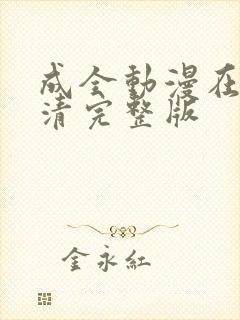 成全動漫在
清完整版
金永紅